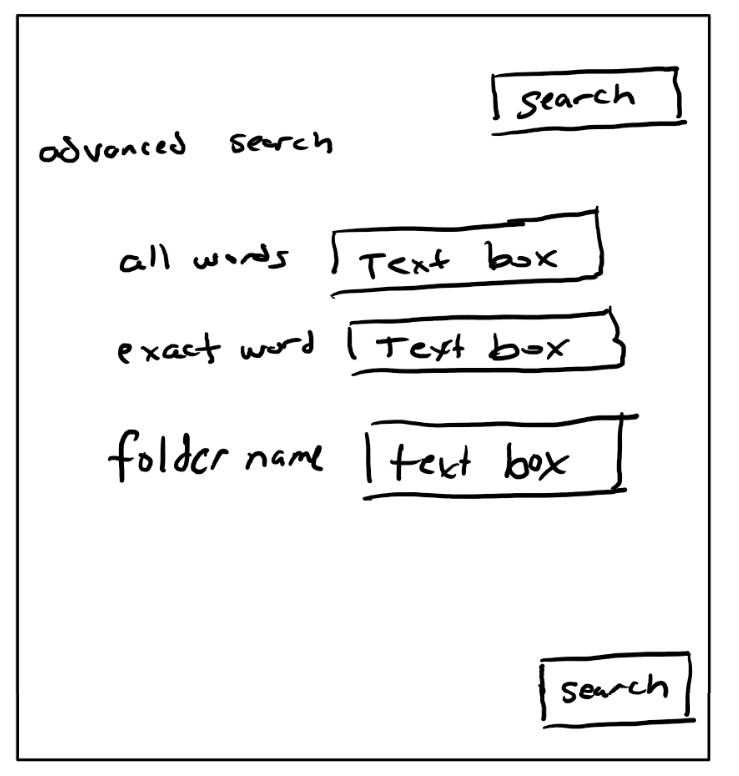 search
advanced search
all words Text box
exact word Text box
folder name text box
search